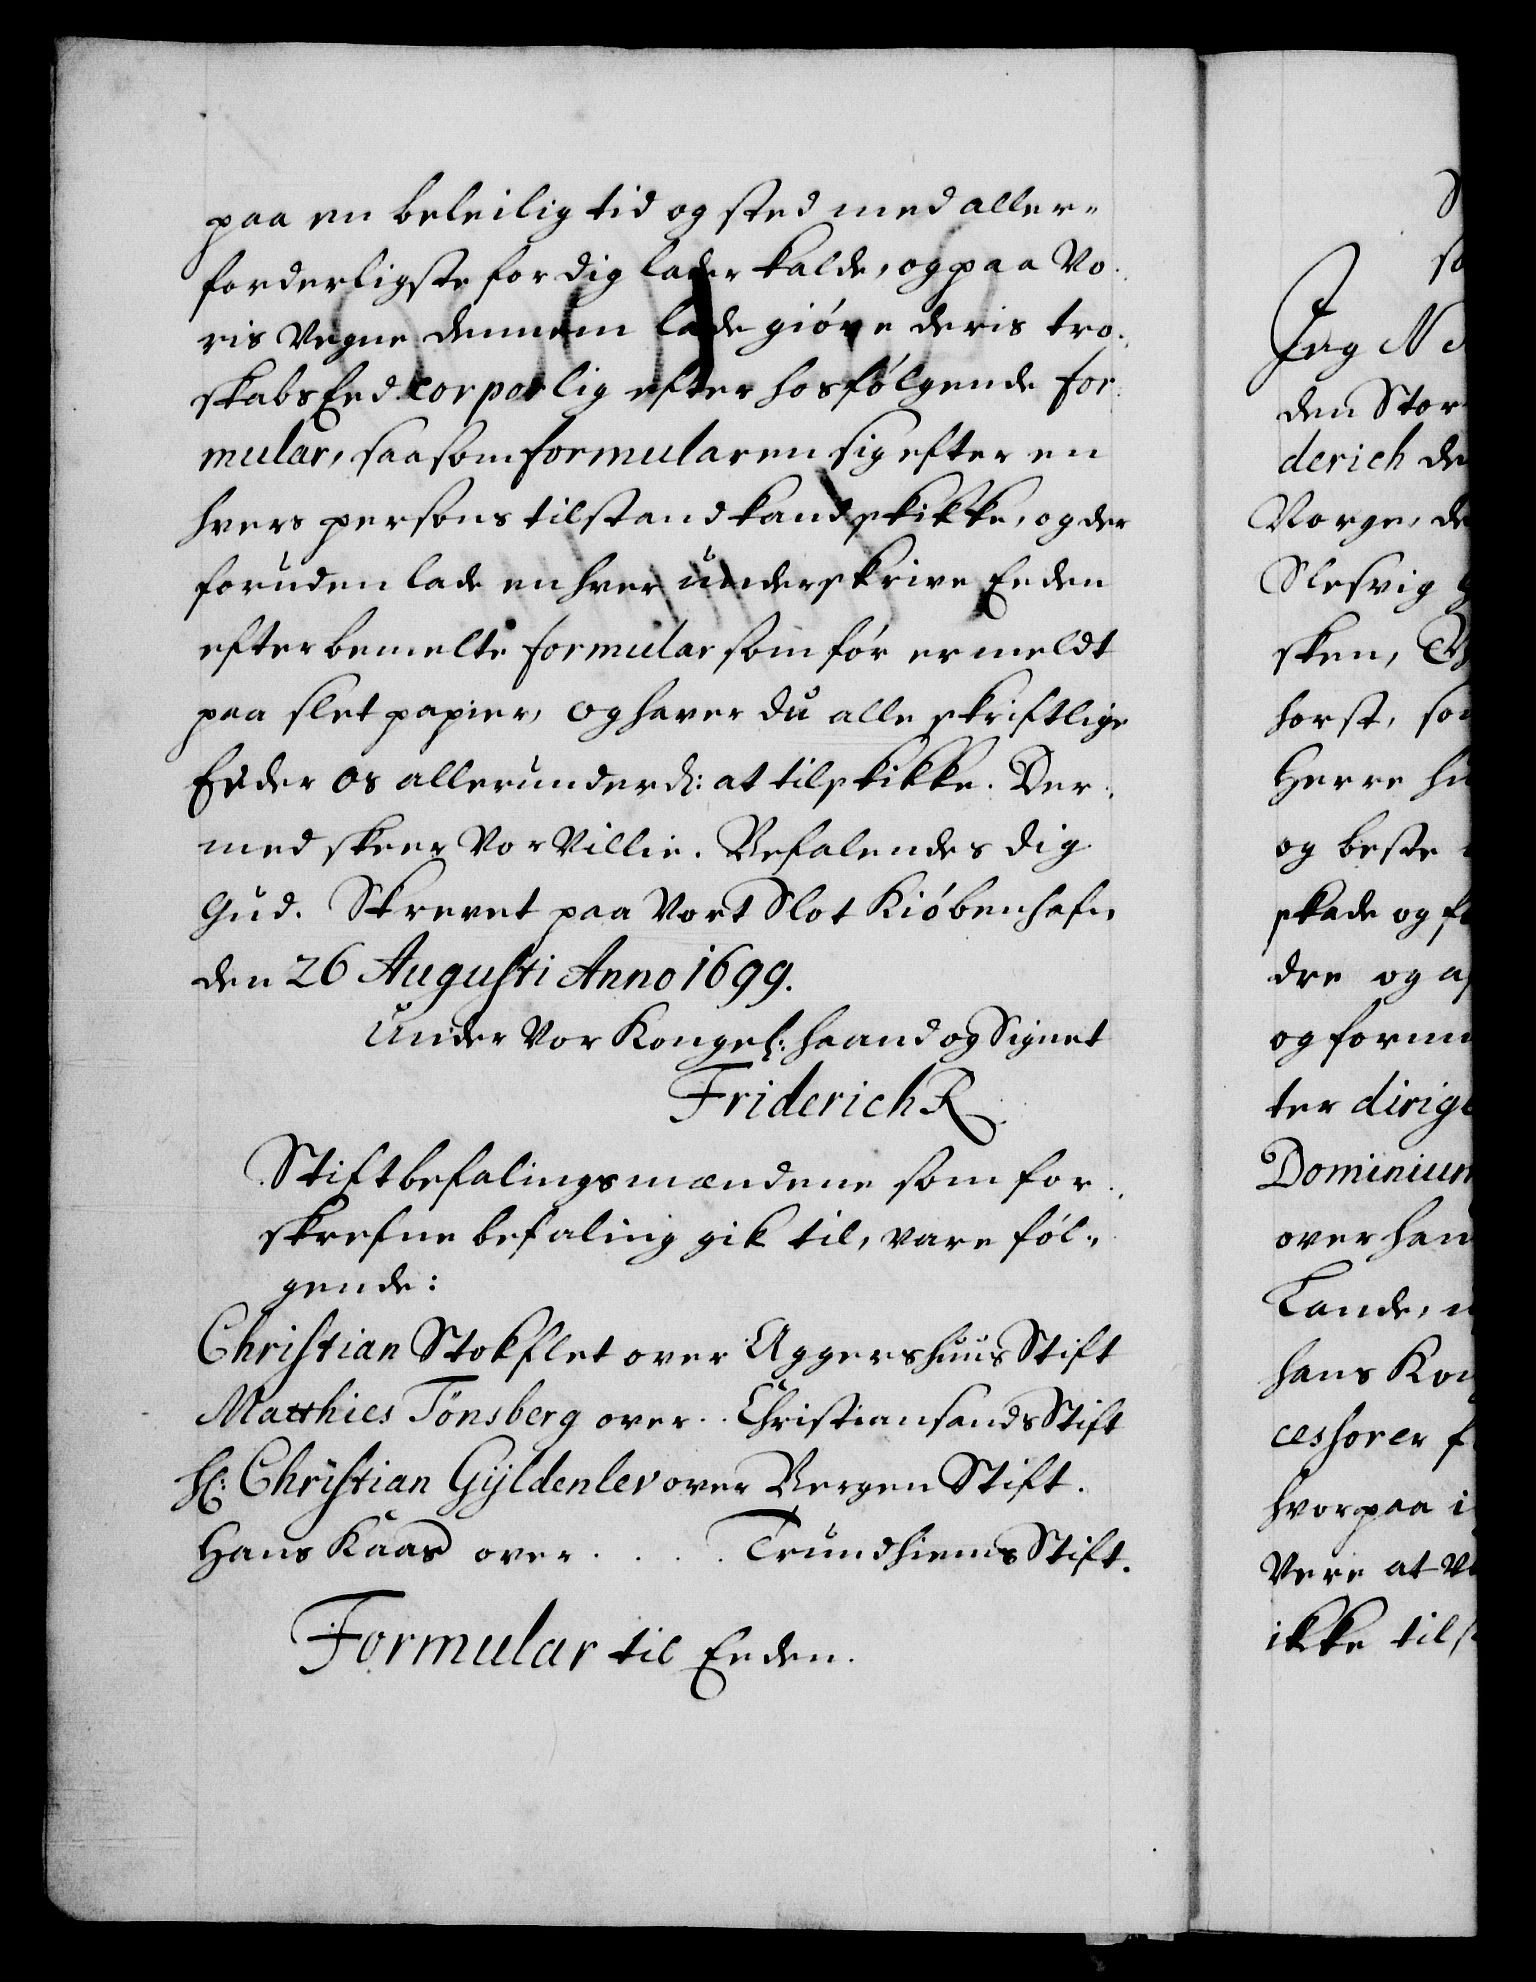 paa en beleilig tid og sted med aller-
forderligste for dig lader kalde, og paa Vo-
ris Vegne dennem lade giöre deris tro-
skabs Eed corporlig efter hosfölgende for-
mular, saasom formularen sig efter en
hvers persons tilstand kand skikke, og der
foruden lade en hver underskrive Eeden
efter bemelte formular som för er meldt
paa slet papier, og haver du alle skriftlige
Eeder os allerunderd: at tilskikke. Der-
med skeer Vor Villie. Befalendes dig
Gud. Skrevet paa Vort Slot Kiöbenhafn
den 26 Augusti Anno 1699.
Under Vor Kongel: haand og Signet
Friderich R
Stiftbefalingsmændene som for-
skrefne befaling gik til, vare föl-
gende:
Christian Stokflet over Aggershuus Stift
Matthies Tönsberg over . . Christiansands Stift
Hr: Christian Gyldenlev over Bergen Stift.
Hans Kaas over . . . . Trundhiems Stift.
Formular til Eeden.
Jeg N
den Stor
derich de
Norge, de
Slesvig
sken,
horst, som
Herre
og beste
skade og
dre og
og
ter dirige
Dominium
over
Lande,
hans Kon
cessorer
hvorpaa
Vere at
ikke